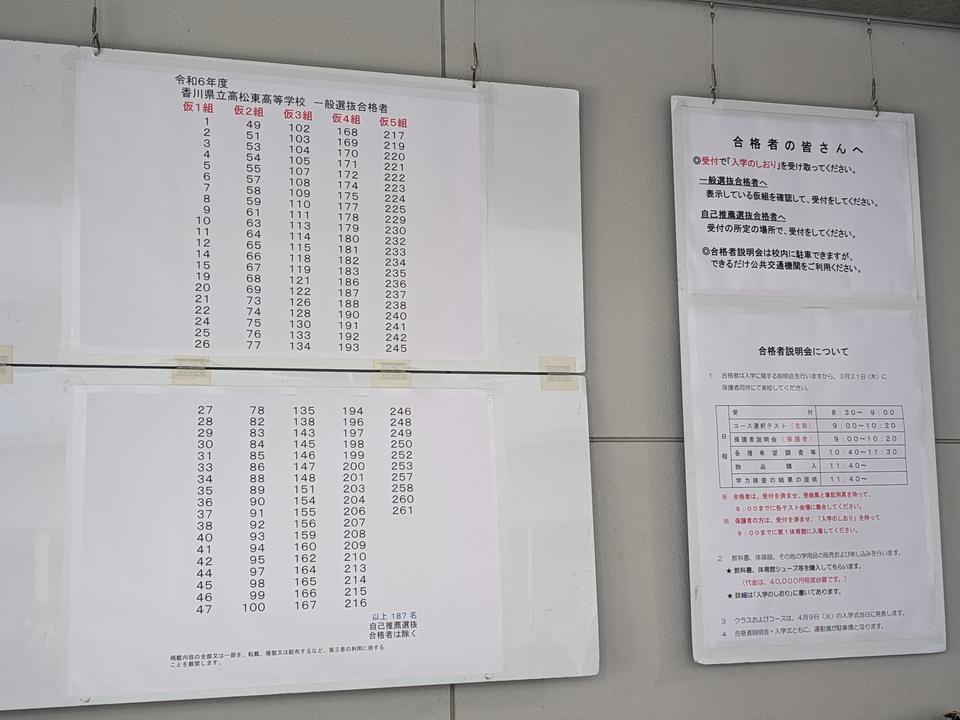 令和6年度
香川県立高松東高等学校 一般選抜合格者
仮1組 仮2組 仮3組 仮4組 仮5組
1 49 102 168 217
2 51 103 169 219
3 53 104 170 220
4 54 105 171 221
5 55 107 172 222
6 57 108 174 223
7 58 109 175 224
8 59 110 177 225
9 61 111 178 229
10 63 113 179 230
11 64 114 180 232
12 65 115 181 233
14 66 118 182 234
15 67 119 183 235
19 68 121 186 236
20 69 122 187 237
21 73 126 188 238
22 74 128 190 240
24 75 130 191 241
25 76 133 192 242
26 77 134 193 245
27 78 135 194 246
28 82 138 196 248
29 83 143 197 249
30 84 145 198 250
31 85 146 199 252
33 86 147 200 253
34 88 148 201 257
35 89 151 203 258
36 90 154 204 260
37 91 155 206 261
38 92 156 207
40 93 159 208
41 94 160 209
42 95 162 210
44 97 164 213
45 98 165 214
46 99 166 215
47 100 167 216
以上 187 名
自己推薦選抜
合格者は除く
掲載内容の全部又は一部を、転載、複製又は配布するなど、第三者の利用に供する
ことを厳禁します。
合格者の皆さんへ
◎受付で「入学のしおり」を受け取ってください。
一般選抜合格者へ
表示している仮組を確認して、受付をしてください。
自己推薦選抜合格者へ
受付の所定の場所で、受付をしてください。
◎合格者説明会は校内に駐車できますが、
できるだけ公共交通機関をご利用ください。
合格者説明会について
1 合格者は入学に関する説明会を行いますから、3月21日(木)に
保護者同伴にて来校してください。
日程
受付 8:30～ 9:00
コース選択テスト(生徒) 9:00～10:20
保護者説明会(保護者) 9:00～10:20
各種希望調査等 10:40～11:30
物品購入 11:40～
学力検査の結果の提供 11:40～
※ 合格者は、受付を済ませ、受検票と筆記用具を持って、
9:00までに各テスト会場に集合してください。
※ 保護者の方は、受付を済ませ、「入学のしおり」を持って
9:00までに第1体育館に入場してください。
2 教科書、体操服、その他の学用品の販売および申し込みを行います。
★ 教科書、体育館シューズ等を購入してもらいます。
(代金は、40,000円程度必要です。)
★ 詳細は「入学のしおり」に書いてあります。
3 クラスおよびコースは、4月9日(火)の入学式当日に発表します。
4 合格者説明会・入学式ともに、運動場が駐車場となります。